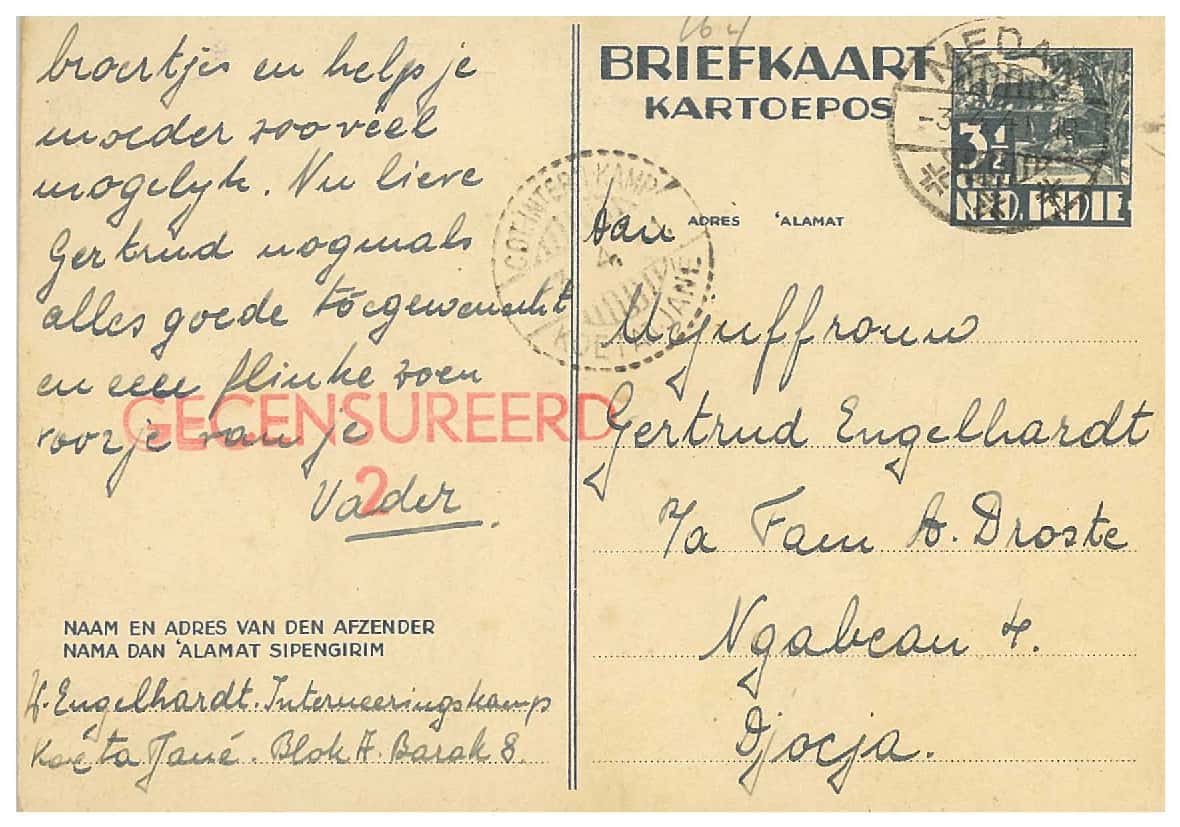 broertjes en help je
moeder zooveel
mogelyk. Nu lieve
Gertrud nogmaals
alles goede toegewenscht
en een flinke zoen
voor je van je
Vader.
GECENSUREERD
2
NAAM EN ADRES VAN DEN AFZENDER
NAMA DAN 'ALAMAT SIPENGIRIM
W. Engelhardt. Interneeringskamp
Koeta Jané. Blok A. Barak 8.
164
BRIEFKAART
KARTOEPOS
MEDAN
3½
CENT
NED. INDIE
INTERN. KAMP
4
KOETATJANE
Aan
ADRES 'ALAMAT
Mejuffrouw
Gertrud Engelhardt
p/a Fam A. Droste
Ngabean 4.
Djocja.